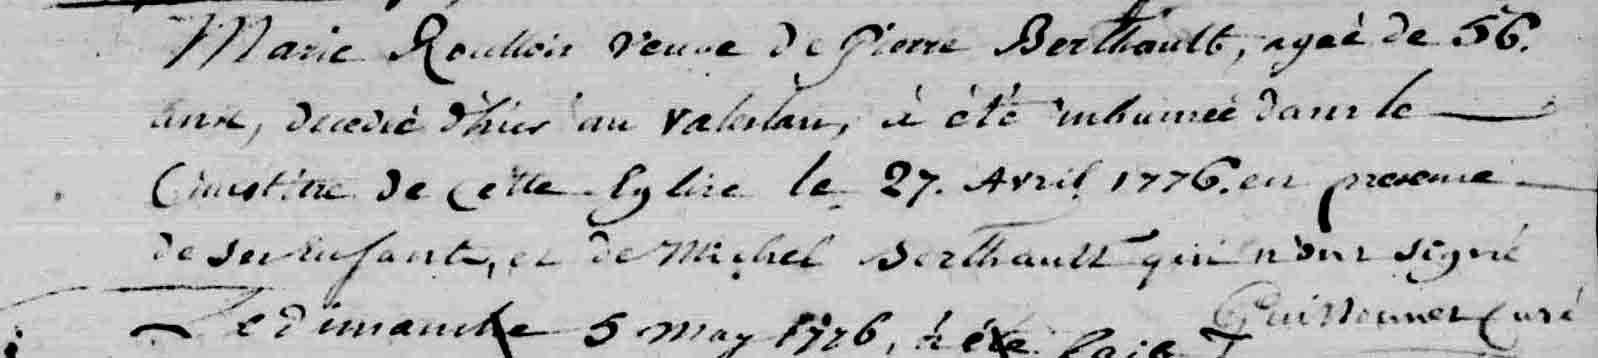 Marie Roulloir veuve de Pierre Berthault, ageé de 56.
ans, decedeé d'hier au , à été inhumeé dans le
Cimetiere de cette Eglise le 27. Avril 1776. en presence
de ses enfants, et de Michel Berthault qui n'ont signé
Guissonnet Curé
Le dimanche 5 May 1776, à été